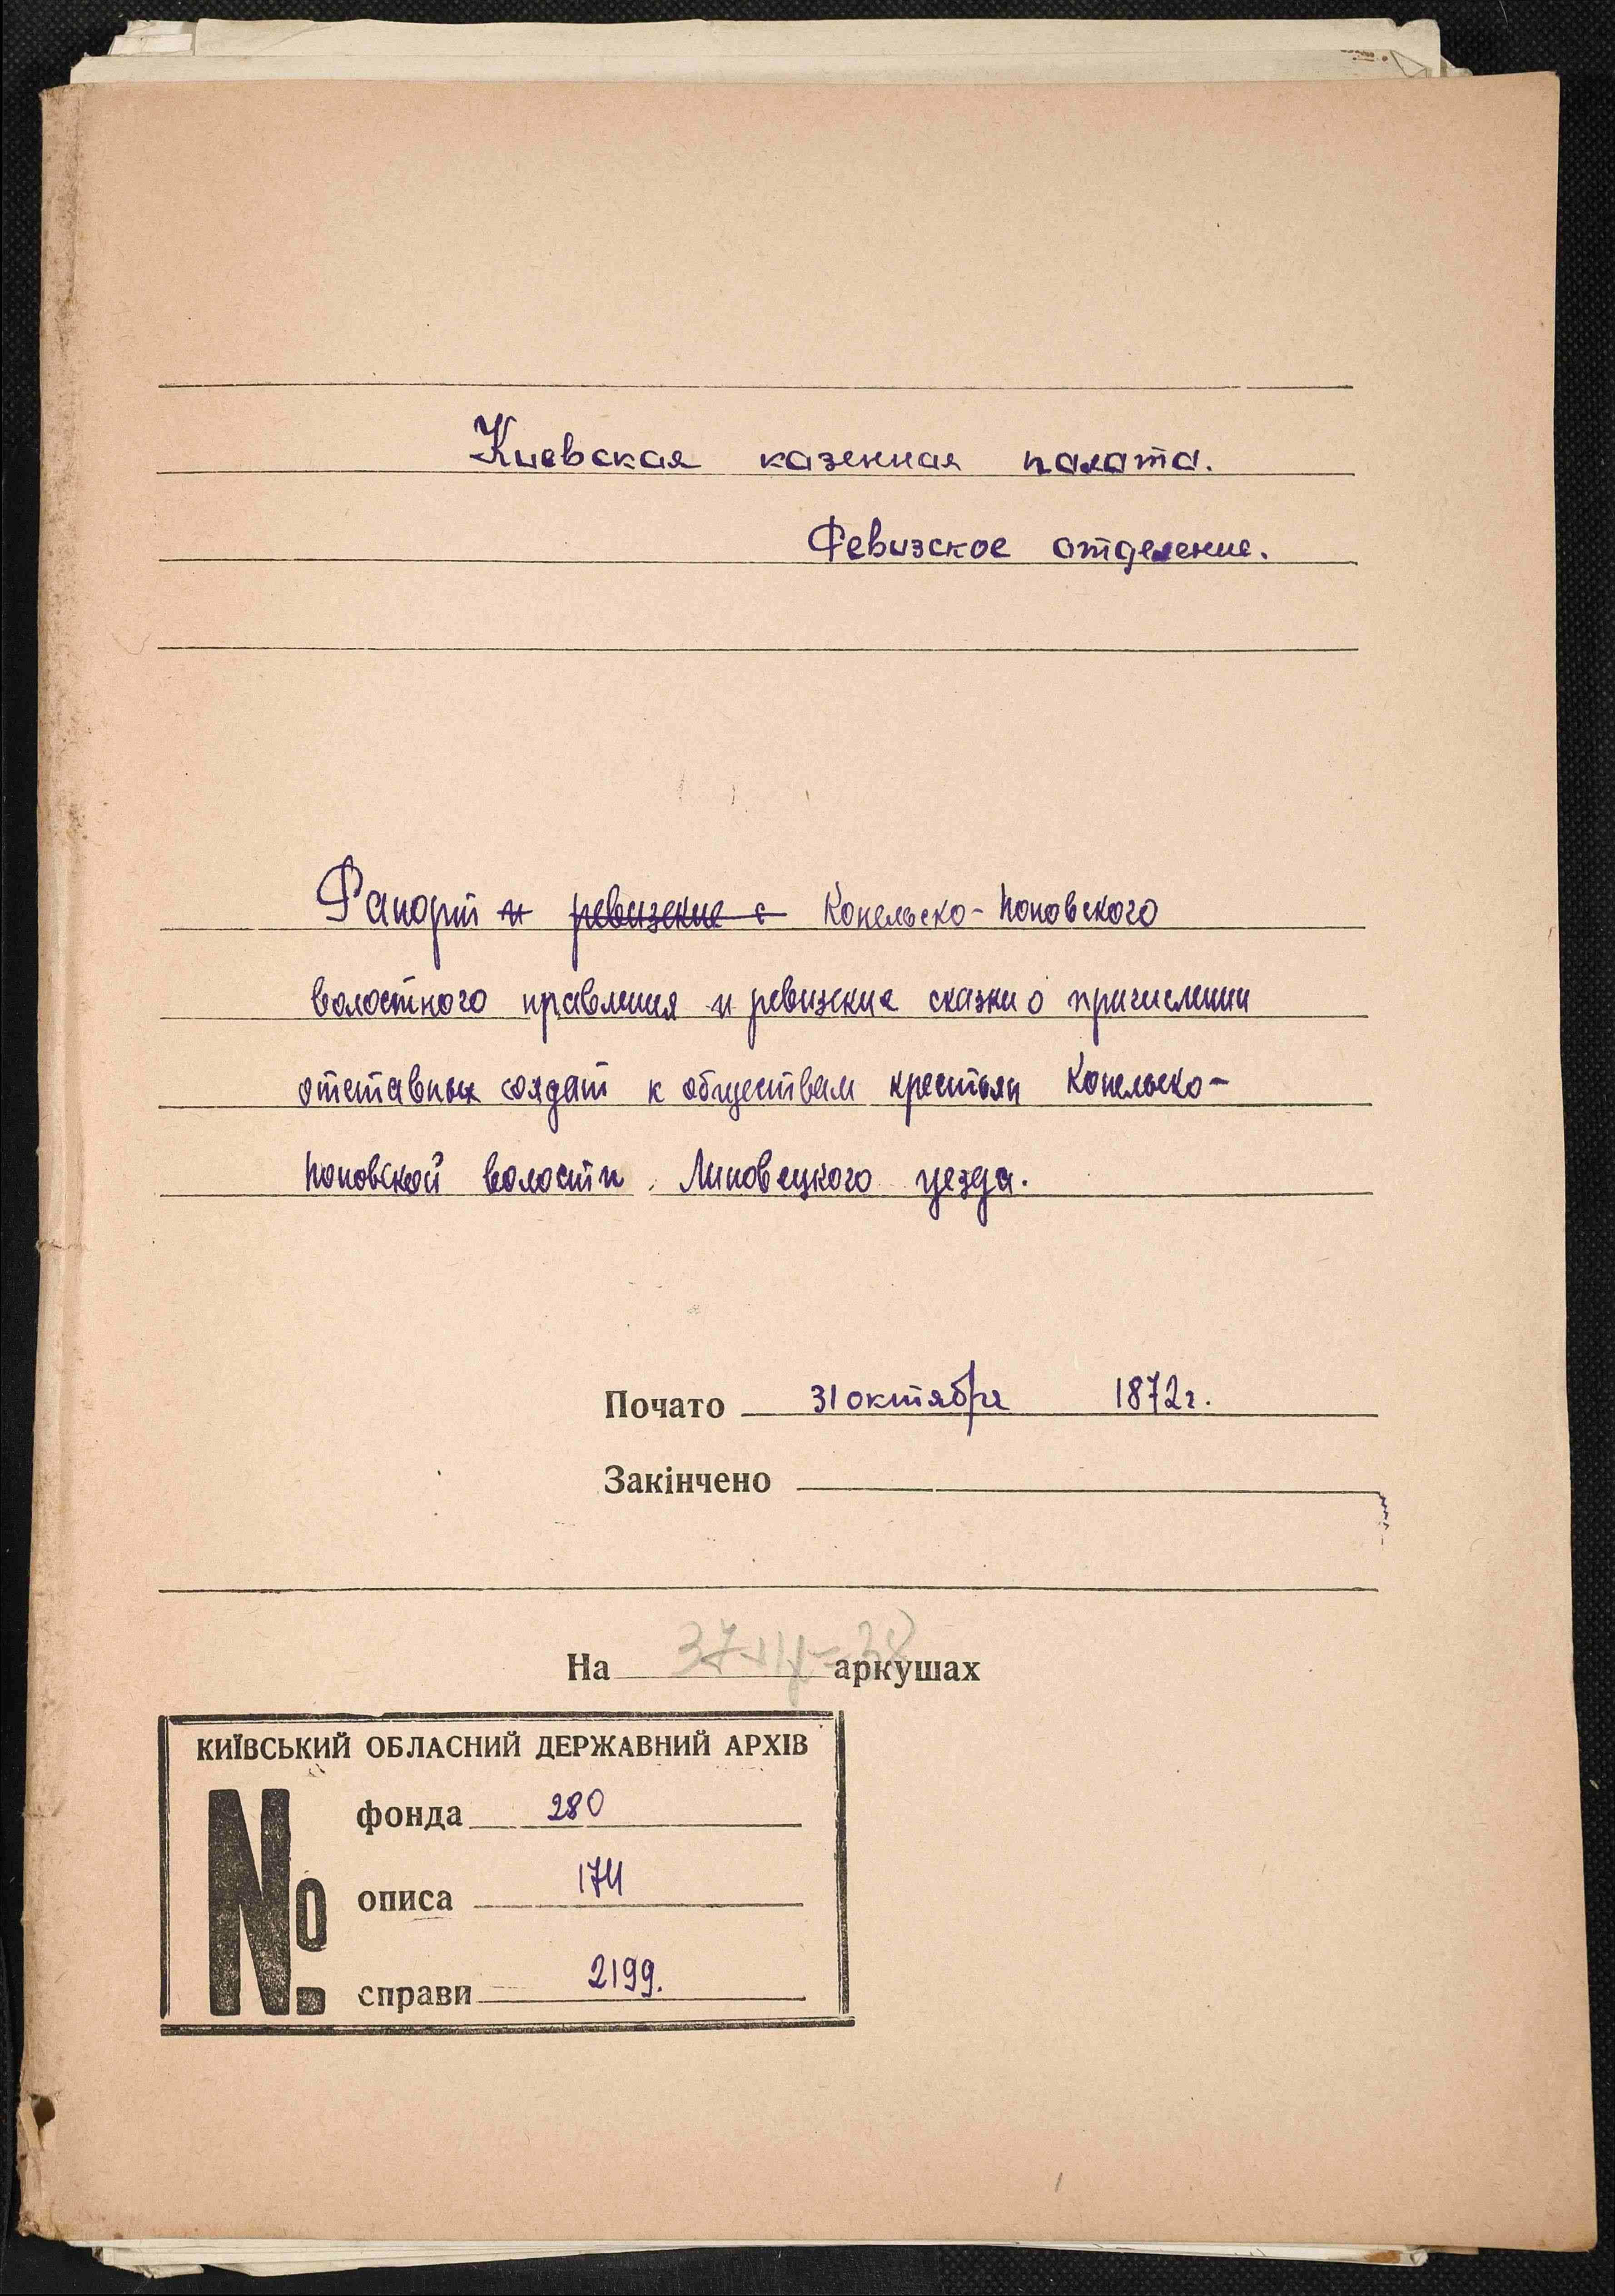 Киевская казенная палата.
Ревизское отделение.
Рапорт и ревизские с Конельско-Поповского
волостного правления и ревизские сказки о причислении
отставных солдат к обществам крестьян Конельско-
Поповской волости Липовецкого уезда.
Почато 31 октября 1872г.
Закінчено
На 37+1=38 аркушах
КИЇВСЬКИЙ ОБЛАСНИЙ ДЕРЖАВНИЙ АРХІВ
№
фонда 280
описа 174
справи 2199.